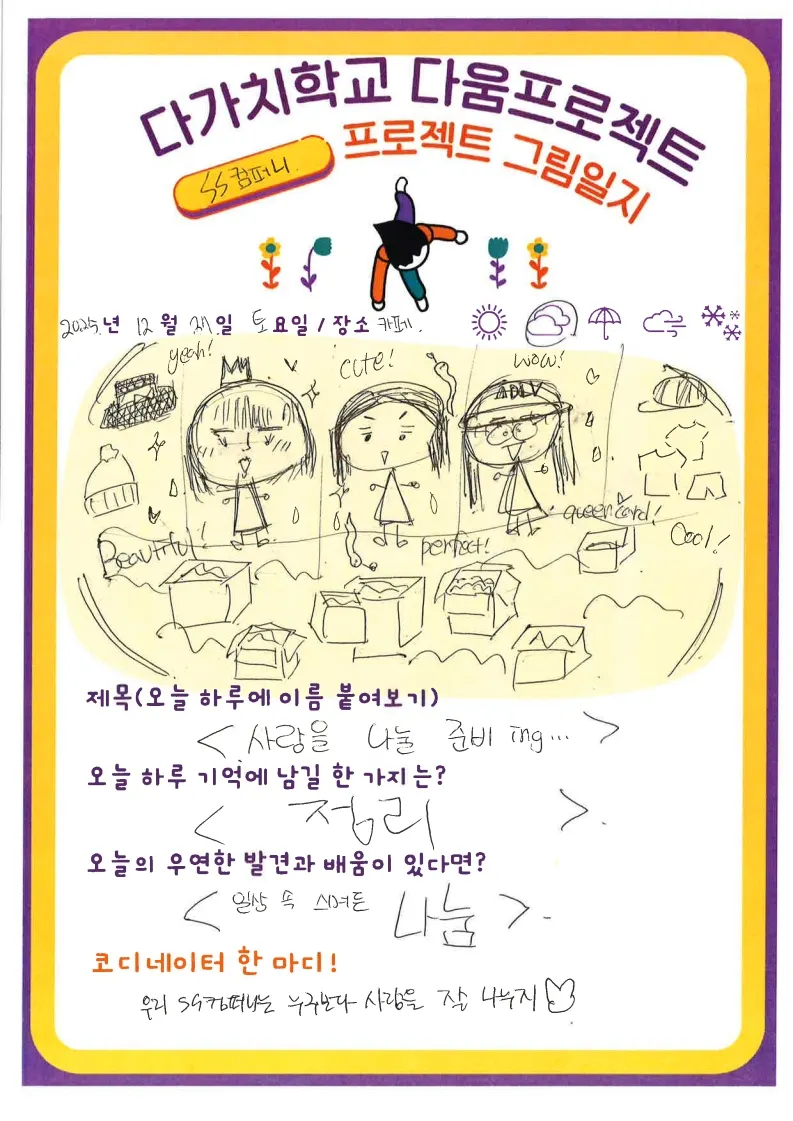 다가치학교 다움프로젝트
프로젝트 그림일지
SS컴퍼니.
2025.년 12월 27.일 토요일 / 장소 카페.
yeah!
cute!
wow!
ADLV
queencard!
Beautiful!
perfect!
Cool!
제목(오늘 하루에 이름 붙여보기)
< 사랑을 나눌 준비 ing... >
오늘 하루 기억에 남길 한 가지는?
< 정리 >.
오늘의 우연한 발견과 배움이 있다면?
< 일상 속 스며든 나눔 >.
코디네이터 한 마디!
우리 SS컴퍼니는 누구보다 사랑을 잘 나누지